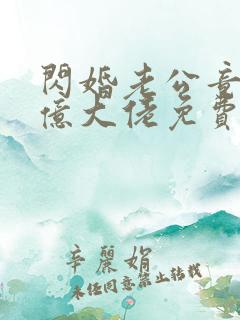 閃婚老公竟
億大佬免費
辛麗娟
未經同意禁止轉載